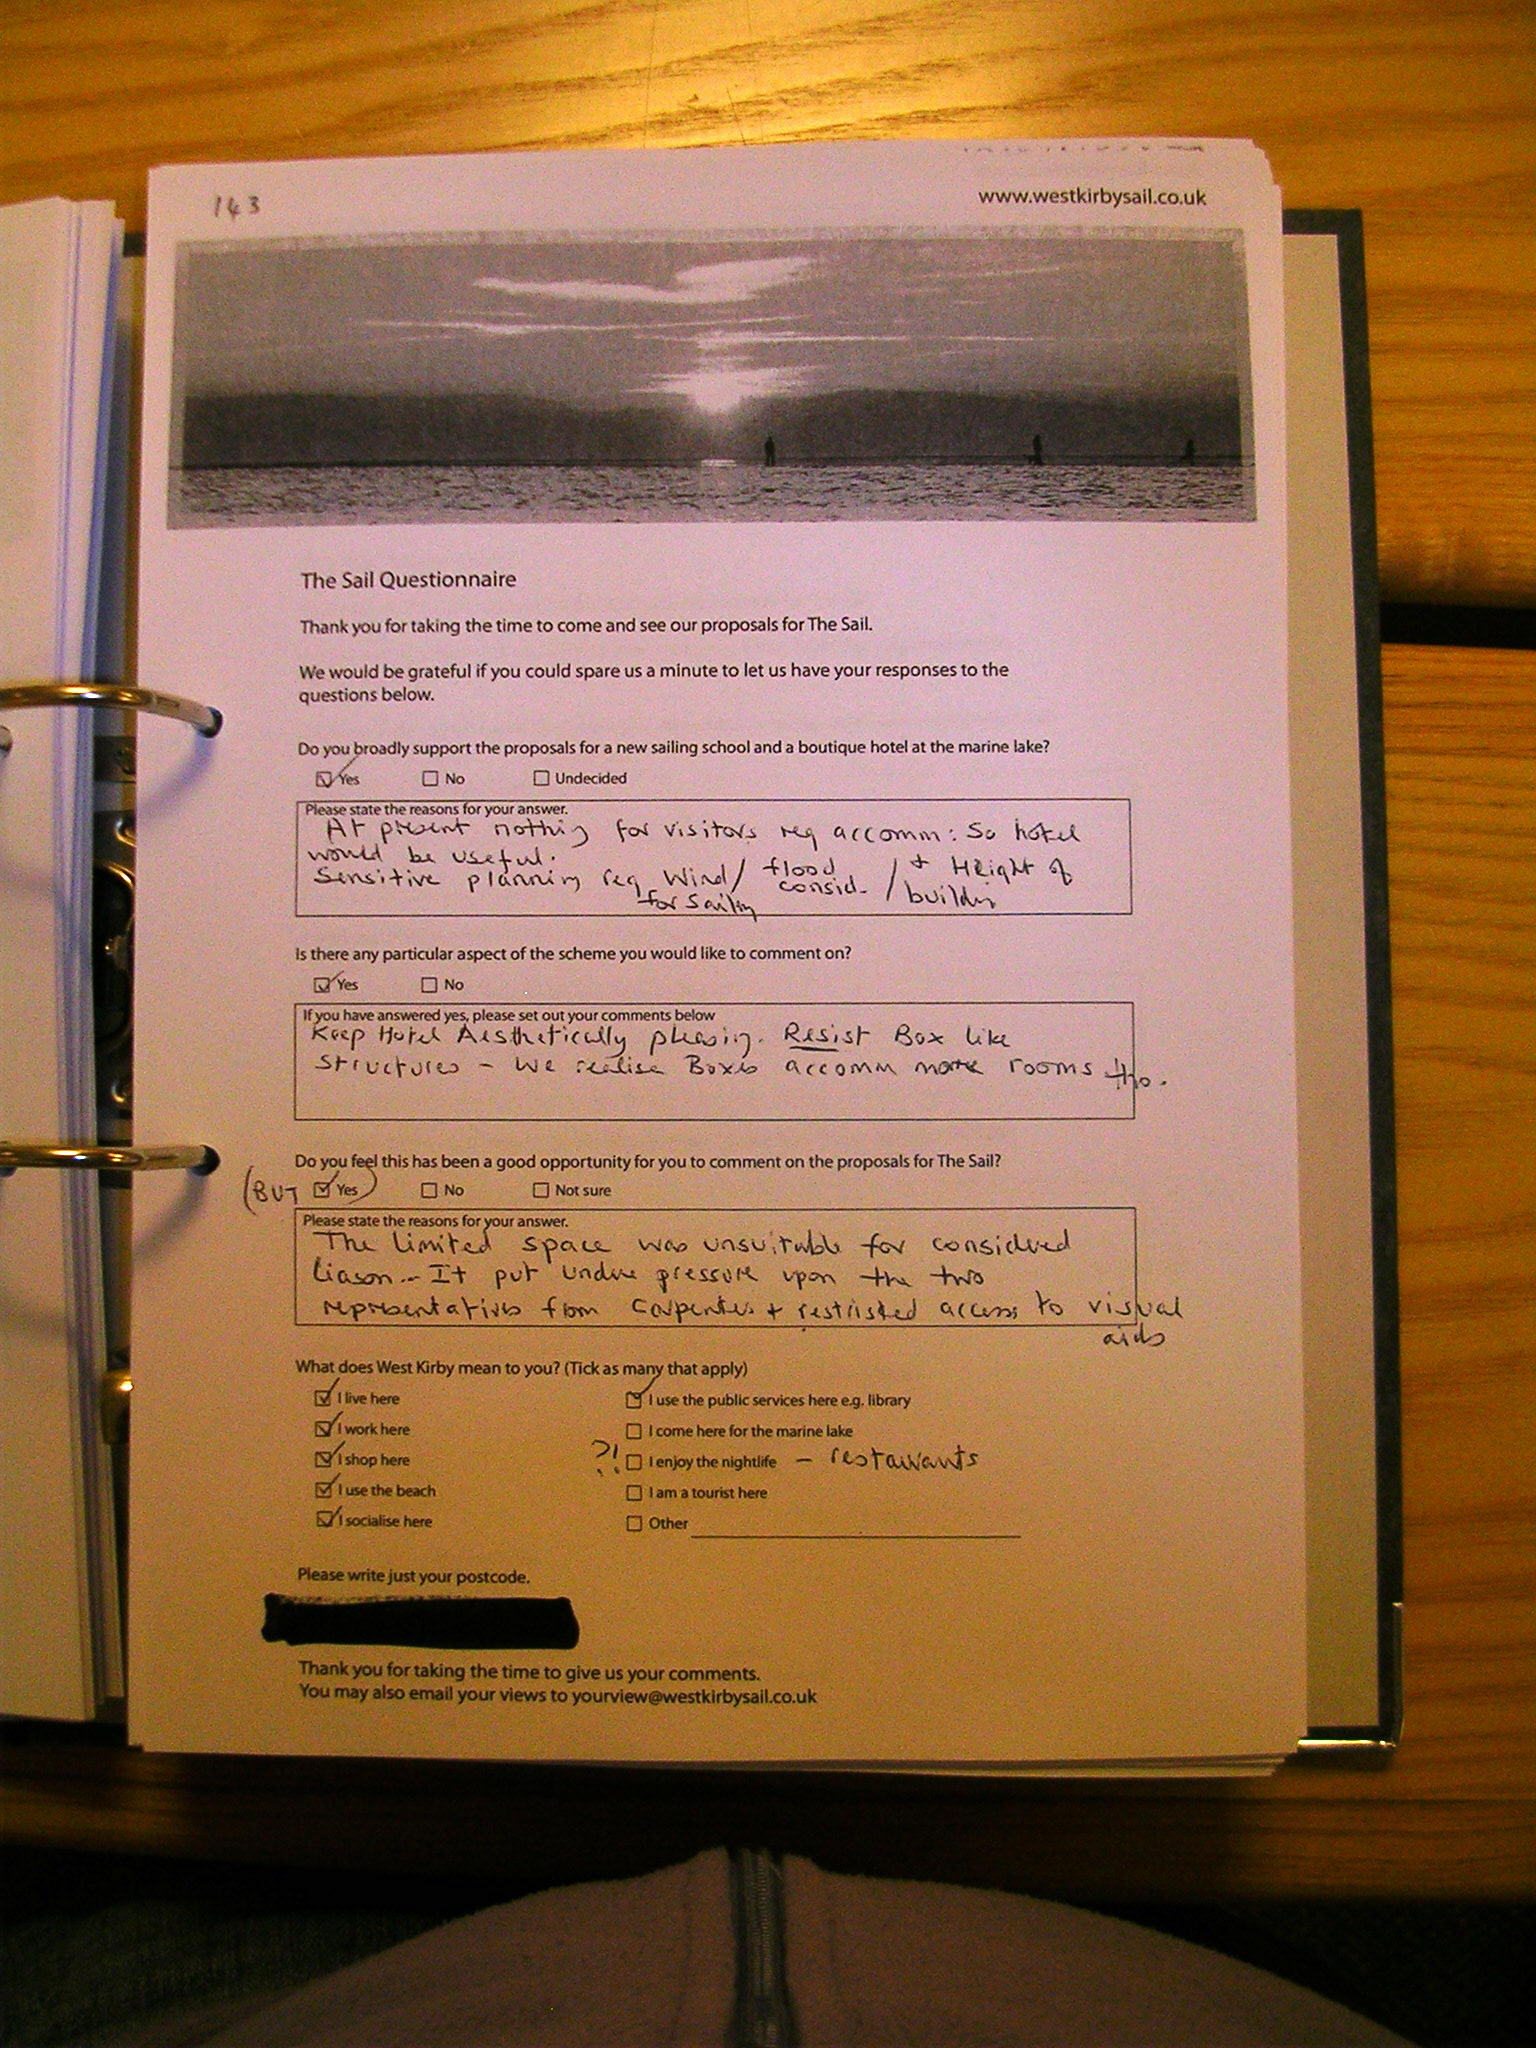 143
www.westkirbysail.co.uk
The Sail Questionnaire
Thank you for taking the time to come and see our proposals for The Sail.
We would be grateful if you could spare us a minute to let us have your responses to the
questions below.
Do you broadly support the proposals for a new sailing school and a boutique hotel at the marine lake?
Yes No Undecided
Please state the reasons for your answer.
At present nothing for visitors req accomm: So hotel
would be useful.
Sensitive planning req Wind/ flood / + Height of
for sailing consid. building
Is there any particular aspect of the scheme you would like to comment on?
Yes No
If you have answered yes, please set out your comments below
Keep Hotel Aesthetically pleasing. Resist Box like
structures - We realise Boxes accomm more rooms tho.
Do you feel this has been a good opportunity for you to comment on the proposals for The Sail?
(BUT Yes) No Not sure
Please state the reasons for your answer.
The limited space was unsuitable for considered
liason - It put undue pressure upon the two
representatives from Carpenters + restristed access to visual
aids
What does West Kirby mean to you? (Tick as many that apply)
I live here I use the public services here e.g. library
I work here I come here for the marine lake
I shop here ?! I enjoy the nightlife - restaurants
I use the beach I am a tourist here
I socialise here Other
Please write just your postcode.
Thank you for taking the time to give us your comments.
You may also email your views to yourview@westkirbysail.co.uk